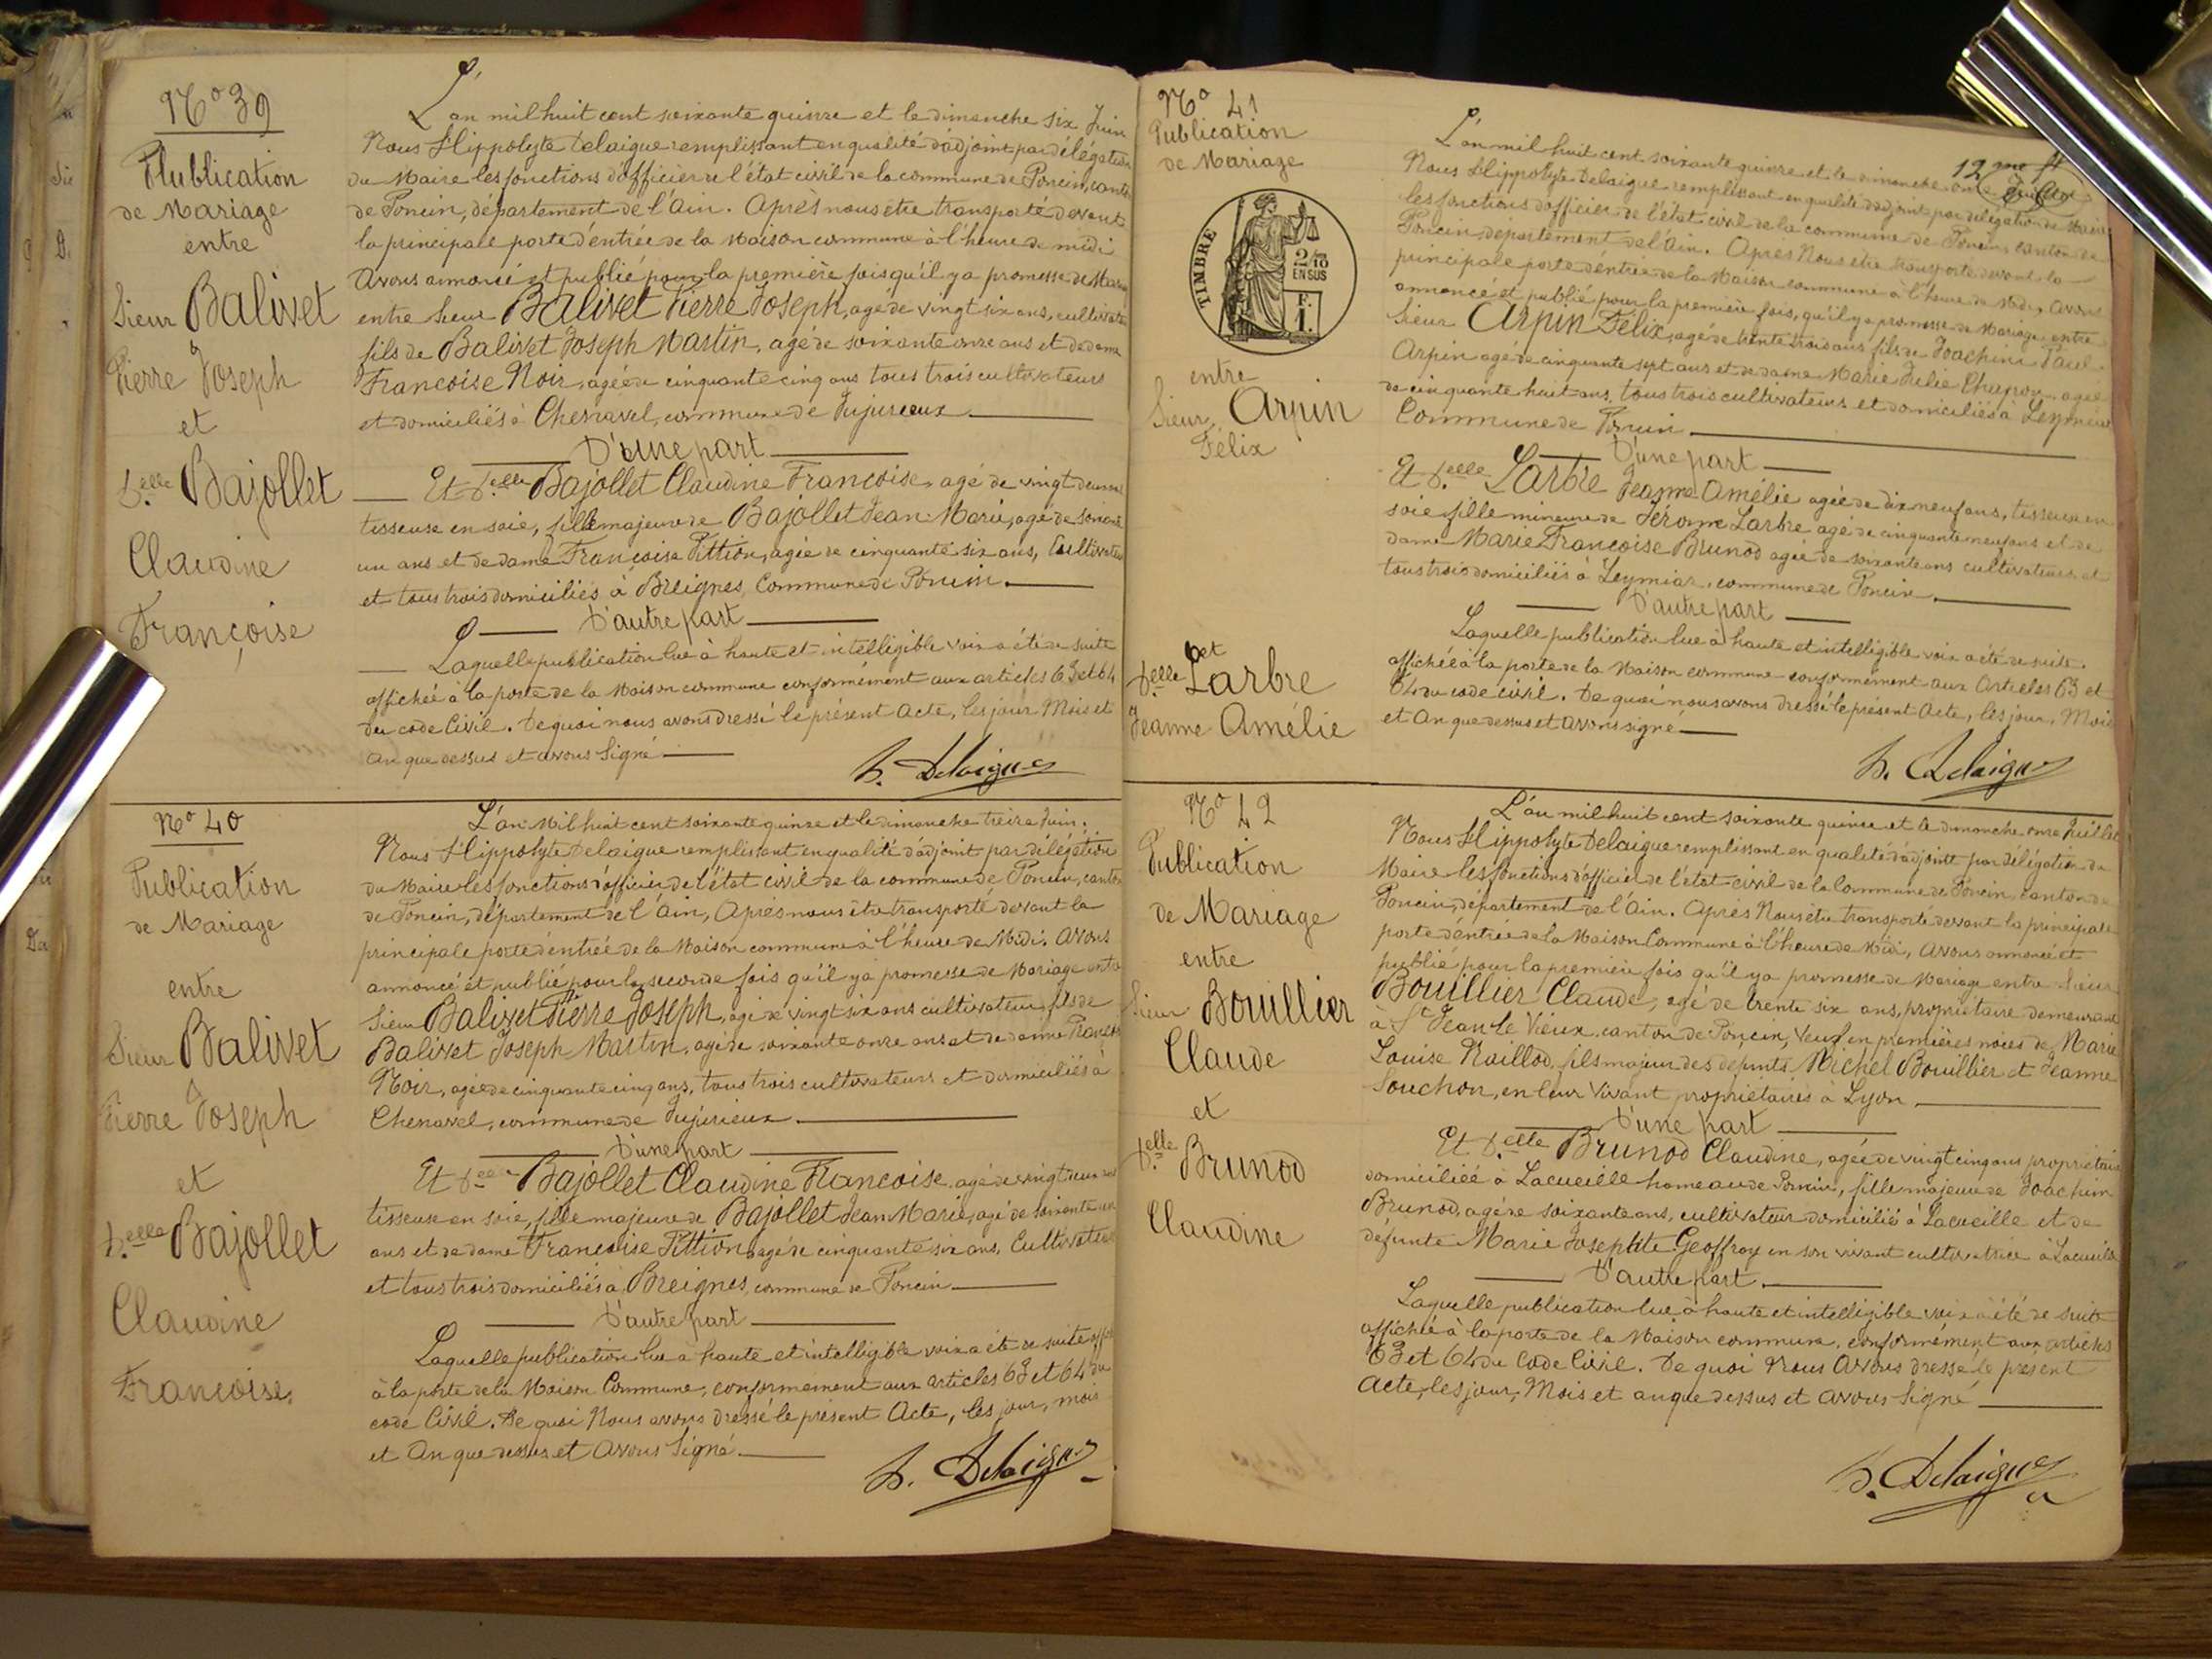 N° 39
Publication
de Mariage
entre
Sieur Balivet
Pierre Joseph
et
D.elle Bajollet
Claudine
Françoise
L'an mil huit cent soixante quinze et le dimanche six Juin
Nous Hippolyte Delaigue remplissant en qualité d'adjoint par délégation
du Maire les fonctions d'officier de l'état civil de la commune de Poncin, canton
de Poncin, département de l'Ain. Après nous être transporté devant
la principale porte d'entrée de la Maison commune à l'heure de midi
avons annoncé et publié pour la première fois qu'il y a promesse de Mariage
entre Sieur Balivet Pierre Joseph, agé de vingt six ans, cultivateur
fils de Balivet Joseph Martin, agé de soixante onze ans et de dame
Françoise Noir, agée de cinquante cinq ans tous trois cultivateurs
et domiciliés à Chenavel, commune de Jujurieux
D'une part
Et D.elle Bajollet Claudine Françoise, agé de vingt deux ans
tisseuse en soie, fille majeure de Bajollet Jean Marie, agé de soixante
un ans et de dame Françoise Pittion, agée de cinquante six ans, Cultivateurs
et tous trois domiciliés à Breignes, Commune de Poncin.
D'autre part
Laquelle publication lue à haute et intelligible voix a été de suite
affichée à la porte de la Maison commune conformément aux articles 63 et 64
du code Civil. De quoi nous avons dressé le présent Acte, les jour Mois et
an que dessus et avons Signé
h. Delaigue
N° 40
Publication
de Mariage
entre
Sieur Balivet
Pierre Joseph
et
D.elle Bajollet
Claudine
Françoise.
L'an Mil huit cent soixante quinze et le dimanche treize Juin.
Nous Hippolyte Delaigue remplissant en qualité d'adjoint par délégation
du Maire les fonctions d'officier de l'état civil de la commune de Poncin, canton
de Poncin, département de l'Ain, Après nous être transporté devant la
principale porte d'entrée de la Maison commune à l'heure de Midi. Avons
annoncé et publié pour la seconde fois qu'il y a promesse de Mariage entre
Sieur Balivet Pierre Joseph, agé de vingt six ans cultivateur, fils de
Balivet Joseph Martin, agé de soixante onze ans et de dame Françoise
Noir, agée de cinquante cinq ans, tous trois cultivateurs et domiciliés à
Chenavel, commune de Jujurieux.
D'une part
Et D.elle Bajollet Claudine Françoise agé de vingt deux ans
tisseuse en soie, fille majeure de Bajollet Jean Marie, agé de soixante un
ans et de dame Françoise Pittion, agé de cinquante six ans, Cultivateurs
et tous trois domiciliés à Breignes, commune de Poncin
D'autre part
Laquelle publication lue à haute et intelligible voix a été de suite affichée
à la porte de la Maison Commune, conformément aux articles 63 et 64 du
code Civil. De quoi Nous avons dressé le présent Acte, les jour, mois
et An que dessus et avons Signé
h. Delaigue
N° 41
Publication
de Mariage
TIMBRE
2/10
EN SUS
F.
1.
entre
Sieur Arpin
Félix
et
D.elle Larbre
Jeanne Amélie
12 me ft
L'an mil huit cent soixante quinze et le dimanche onze Juillet
Nous Hippolyte Delaigue remplissant en qualité d'adjoint par délégation du Maire
les fonctions d'officier de l'état civil de la commune de Poncin canton de
Poncin, département de l'Ain. Après Nous être transporté devant la
principale porte d'entrée de la Maison commune à l'heure de Midi, avons
annoncé et publié pour la première fois, qu'il y a promesse de Mariage entre
Sieur Arpin Félix, agé de trente trois ans fils de Joachim Paul
Arpin agé de cinquante sept ans et de dame Marie Julie Chapron agée
de cinquante huit ans, tous trois cultivateurs et domiciliés à Leymiar
Commune de Poncin
D'une part
Et D.elle Larbre Jeanne Amélie agée de dix neuf ans, tisseuse en
soie fille mineure de Jérome Larbre agé de cinquante neuf ans et de
dame Marie Françoise Brunod agée de soixante ans cultivateurs et
tous trois domiciliés à Leymiar, commune de Poncin.
D'autre part
Laquelle publication lue à haute et intelligible voix a été de suite.
affichée à la porte de la Maison commune conformément aux Articles 63 et
64 du code civil. De quoi nous avons dressé le présent Acte, les jour, Mois
et An que dessus et avons signé
h. Delaigue
N° 42
Publication
de Mariage
entre
Sieur Bouillier
Claude
et
D.elle Brunod
Claudine
L'an mil huit cent soixante quinze et le dimanche onze Juillet
Nous Hippolyte Delaigue remplissant en qualité d'adjoint par délégation du
Maire les fonctions d'officier de l'état civil de la Commune de Poncin, canton de
Poncin, département de l'Ain. Après Nous être transporté devant la principale
porte d'entrée de la Maison Commune à l'heure de Midi, avons annoncé et
publié pour la première fois qu'il y a promesse de Mariage entre Sieur
Bouillier Claude, agé de trente six ans, propriétaire demeurant
à St Jean le Vieux, canton de Poncin, Veuf en premières noces de Marie
Louise Naillod, fils majeur des défunts Michel Bouillier et Jeanne
Souchon, en leur Vivant propriétaires à Lyon.
D'une part
Et D.elle Brunod Claudine, agée de vingt cinq ans propriétaire
domiciliée à Lacueille hameau de Poncin, fille majeure de Joachim
Brunod, agé de soixante ans, cultivateur domicilié à Lacueille et de
défunte Marie Josephte Geoffray en son vivant cultivatrice à Lacueille
D'autre part.
Laquelle publication lue à haute et intelligible voix a été de suite
affichée à la porte de la Maison commune, conformément aux articles
63 et 64 du Code Civil. De quoi Nous Avons dressé le présent
Acte, les jour, Mois et an que dessus et avons Signé
h. Delaigue